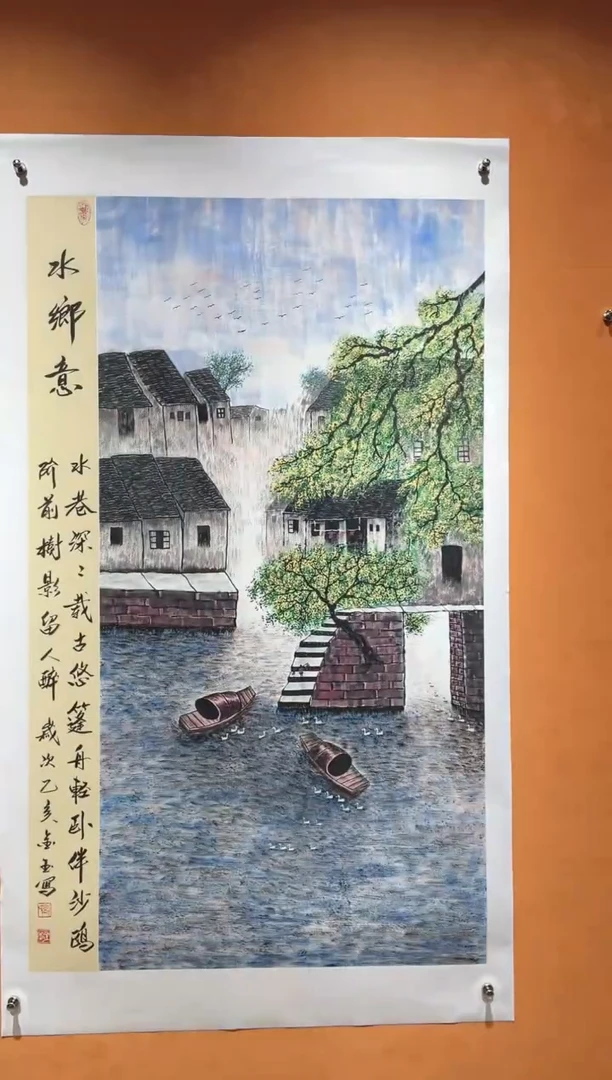 水鄉意
水巷深〻載古悠篷舟輕卧伴沙鸥
阶前樹影留人醉 歲次乙亥金玉寫